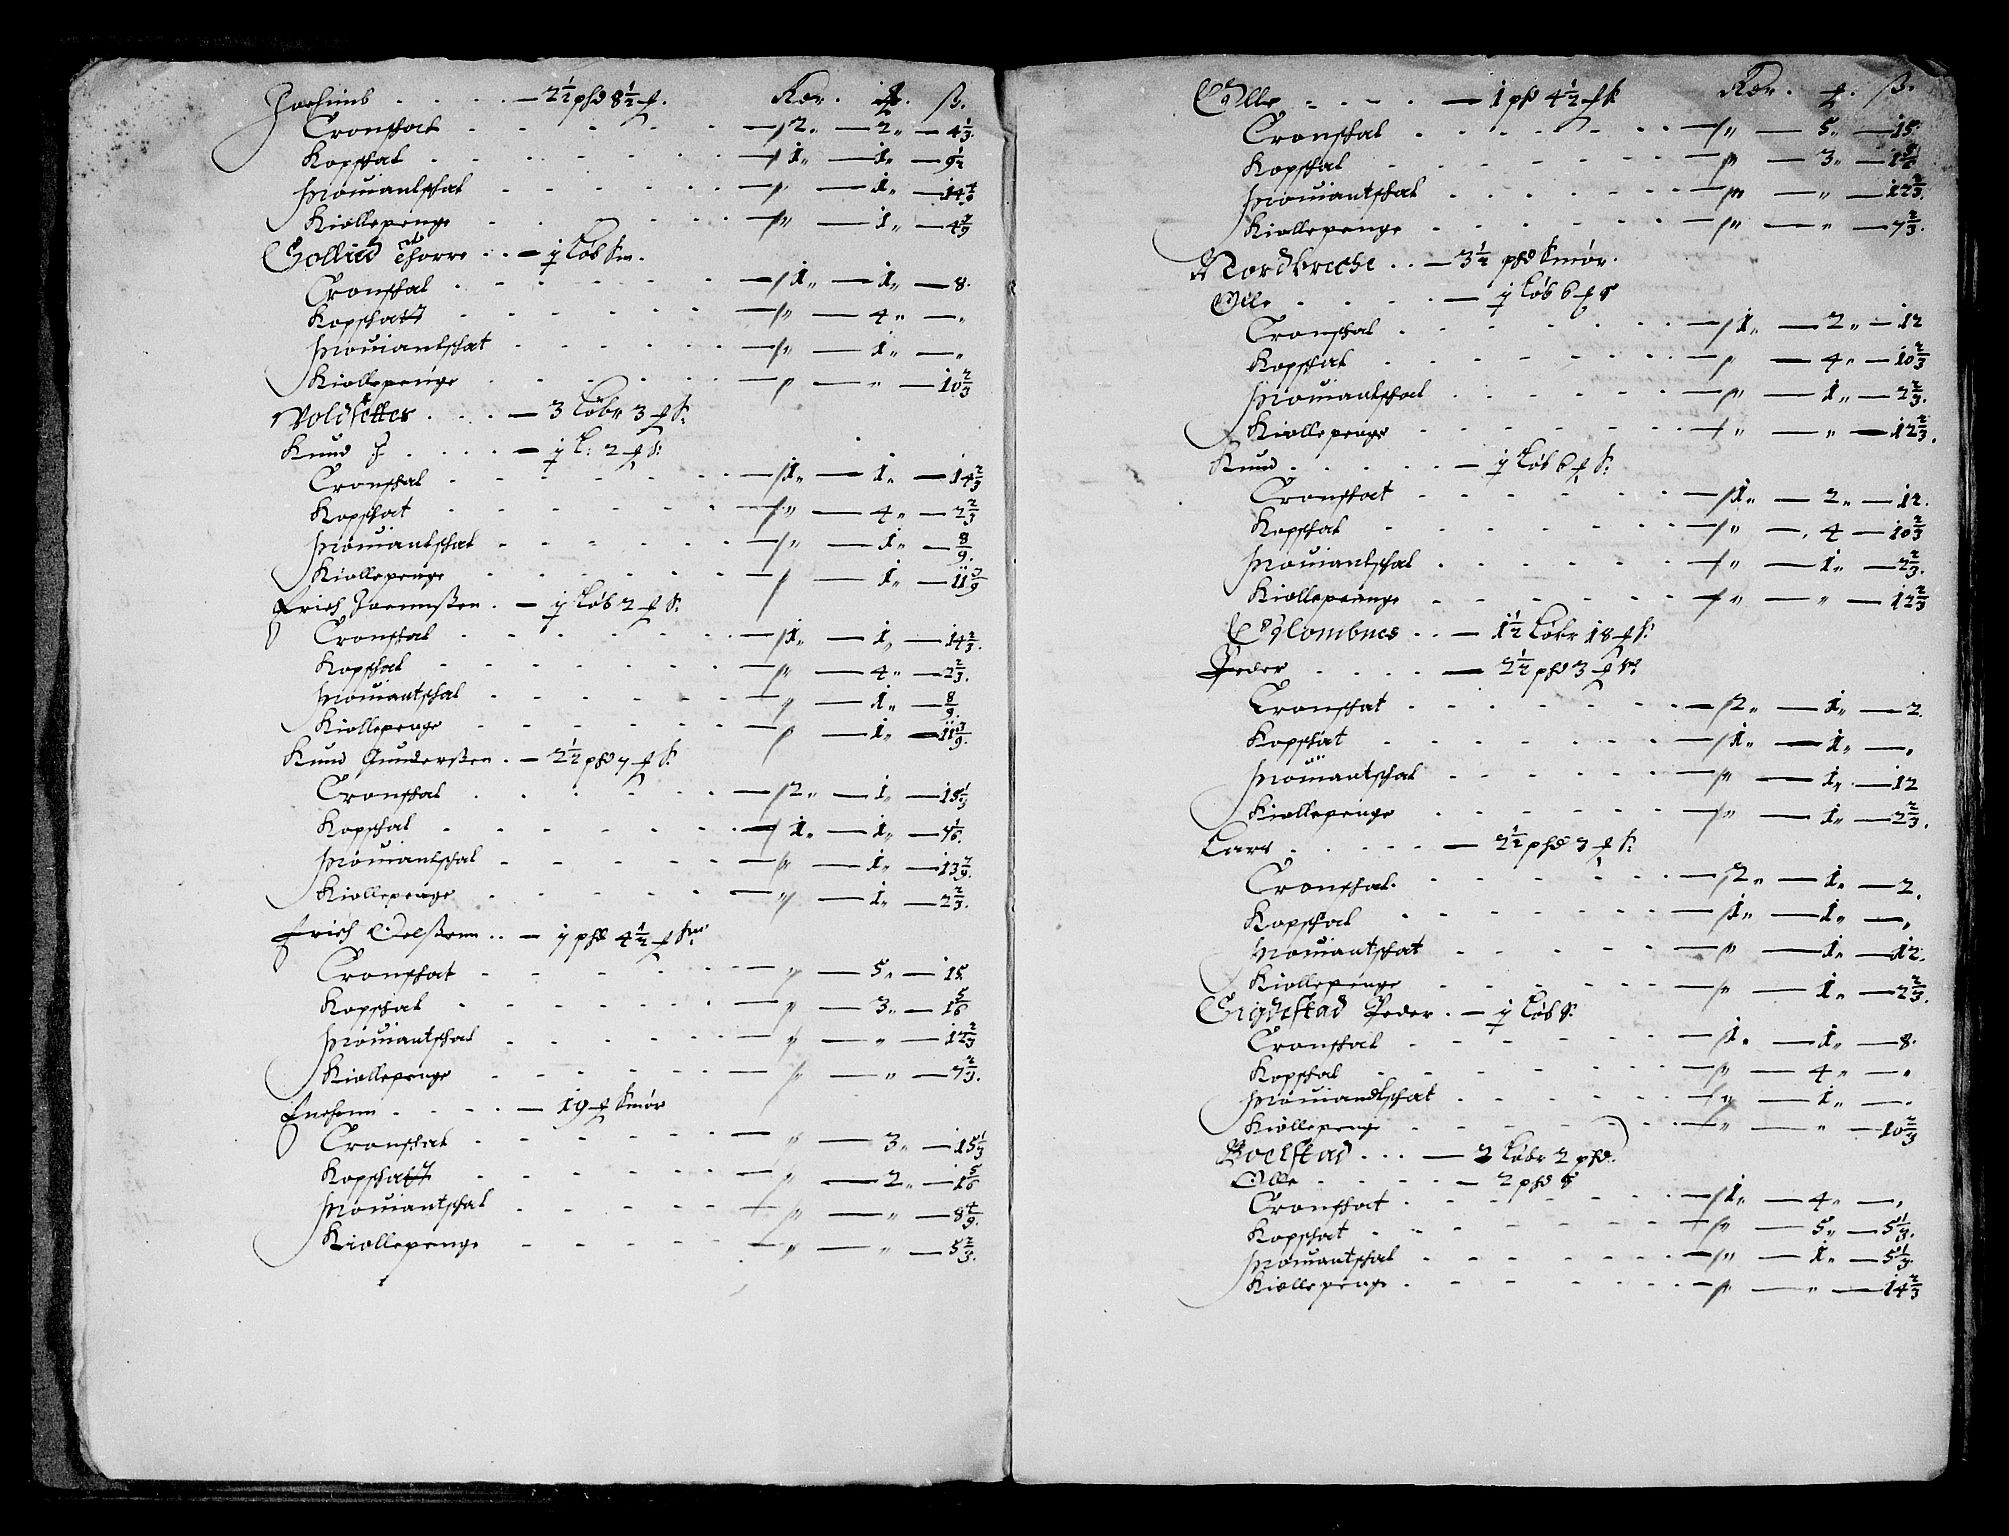 Jochimb . . . . — 2½ phd 8½ ℔. Rdr. ℔. ß.
Cronschat . . . . . — 2 „ — 2 „ — 4⅓
Kopschat . . . . . — 1 „ — 1 „ — 9½
Prouiantschat . . . . . — „ — 1 „ — 14 4/9
Kiøllepenge . . . . . — „ — 1 „ — 4 7/9
Thorre . . — 1 Løb Sm.
Cronschat . . . . . — 1 „ — 1 „ — 8.
Kopschatt . . . . . — „ — 4 „ — „
Prouiantschat . . . . . — „ — 1 „ — „
Kiøllepenge . . . . . — „ — „ — 10⅔
Voldsetter . . . — 3 Løbr 3 ℔ S:
Knud J . . . . — 1 L: 2 ℔ S:
Cronschat . . . . . — 1 „ — 1 „ — 14⅔
Kopschat . . . . . — „ — 4 „ — 2⅔
Prouiantschat . . . . . — „ — 1 „ — 8/9
Kiøllepenge . . . . . — „ — 1 „ — 11 5/9
Erich Joennßen . — 1 Løb 2 ℔ S:
Cronschat . . . . . — 1 „ — 1 „ — 14⅔.
Kopschat . . . . . — „ — 4 „ — 2⅔.
Prouiantschat . . . . . — „ — 1 „ — 8/9.
Kiøllepenge . . . . . — „ — 1 „ — 11 5/9.
Knud Gunderßen . — 2½ phd 7 ℔ S:
Cronschat . . . . . — 2 „ — 1 „ — 15⅓
Kopschat . . . . . — 1 „ — 1 „ — 7⅙.
Prouiantschat . . . . . — „ — 1 „ — 13 7/9.
Kiøllepenge . . . . . — „ — 1 „ — 2⅔.
Erich Oelßenn . . — 1 phd 4½ ℔ Sm
Cronschat . . . . . — „ — 5 „ — 15
Kopschat . . . . . — „ — 3 „ — 1⅚
Prouiantschat . . . . . — „ — „ — 12⅔
Kiøllepenge . . . . . — „ — „ — 7⅔.
. . . . — 19 ℔ Smør
Cronschat . . . . . — „ — 3 „ — 15⅓
Kopschatt . . . . . — „ — 2 „ — 1⅚
Prouiantschat . . . . . — „ — „ — 8 4/9.
Kiøllepenge . . . . . — „ — „ — 5⅔.
Olle . . . . — 1 phd 4½ ℔ Rdr. ℔. ß.
Cronschat . . . . . — „ — 5 „ — 15
Kopschat . . . . . — „ — 3 „ — 1⅚
Prouiantschat . . . . . — „ — „ — 12⅔.
Kiøllepenge . . . . . — „ — „ — 7⅔.
Nordbreche . . — 3½ phd Smør.
Olle . . . . — 1 Løb 6 ℔ S
Cronschat . . . . . — 1 „ — 2 „ — 12
Kopschat . . . . . — „ — 4 „ — 10⅔
Prouiantschat . . . . . — „ — 1 „ — 2⅔.
Kiøllepenge . . . . . — „ — „ — 12⅔.
Knud . . . . . — 1 Løb 6 ℔ S:
Cronschat . . . . . — 1 „ — 2 „ — 12.
Kopschat . . . . . — „ — 4 — 10⅔
Prouiantschat . . . . . — „ — 1 „ — 2⅔.
Kiøllepenge . . . . . — „ — „ — 12⅔
. . — 1½ Løbr 18 ℔ S:
Peder . . . . — 2½ phd 3 ℔ S:
Cronschat . . . . . — 2 „ — 1 „ — 2.
Kopschat . . . . . — 1 „ — 1 „ — „
Prouiantschat . . . . . — „ — 1 „ — 12
Kiøllepenge . . . . . — „ — 1 „ — 2⅔.
Lars . . . . . — 2½ phd 3 ℔ S:
Cronschat . . . . . — 2 „ — 1 „ — 2.
Kopschat . . . . . — 1 „ — 1 „ — „
Prouiantschat . . . . . — „ — 1 „ — 12.
Kiøllepenge . . . . . — „ — 1 „ — 2⅔.
Peder . — 1 Løb S:
Cronschat . . . . . — 1 „ — 1 „ — 8.
Kopschat . . . . . — „ — 4 „ — „
Prouiandtschat . . . . . — „ — 1 „ — „
Kiøllepenge . . . . . — „ — „ — 10⅔
Boelstad . . . — 2 Løbr 2 phd.
Olle . . . . — 2 phd S
Cronschat . . . . . — 1 „ — 4 „ — „
Kopschat . . . . . — „ — 5 „ — 5⅓.
Prouiantschat . . . . . — „ — 1 „ — 5⅓.
Kiøllepenge . . . . . — „ — „ — 14⅔